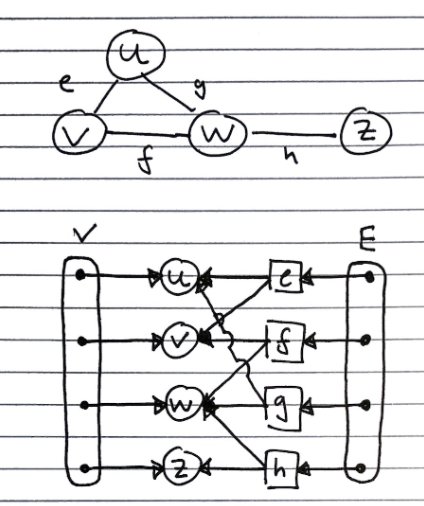 u
e g
v w z
f h
V E
u e
v f
w g
z h